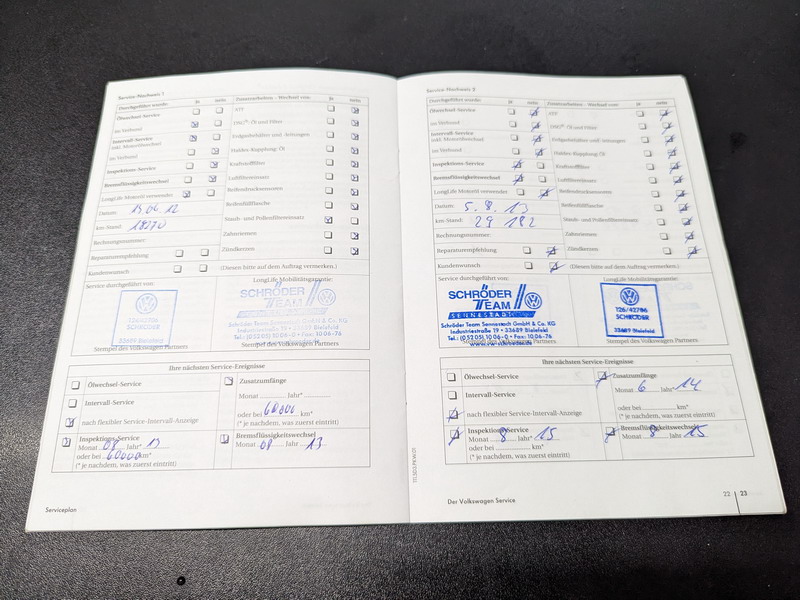 Service-Nachweis 1
Durchgeführt wurde: ja nein
Zusatzarbeiten - Wechsel von: ja nein
Ölwechsel-Service
ATF
im Verbund
DSG®-Öl und Filter
Intervall-Service
inkl. Motorölwechsel
Erdgasbehälter und -leitungen
im Verbund
Haldex-Kupplung Öl
Inspektions-Service
Kraftstofffilter
Bremsflüssigkeitswechsel
Luftfiltereinsatz
LongLife Motoröl verwendet
Reifendrucksensoren
Datum:
Reifenfüllflasche
km-Stand: 18270
Staub- und Pollenfiltereinsatz
Rechnungsnummer:
Zahnriemen
Reparaturempfehlung
Zündkerzen
Kundenwunsch
(Diesen bitte auf dem Auftrag vermerken.)
Service durchgeführt von:
LongLife Mobilitätsgarantie:
126/42706
SCHRÖDER
33689 Bielefeld
SCHRÖDER
TEAM
SENNESTADT
Schröder Team Sennestadt GmbH & Co. KG
Industriestraße 19 • 33689 Bielefeld
Tel.: (0 52 05) 10 06-0 • Fax: 10 06-76
Stempel des Volkswagen Partners
Stempel des Volkswagen Partners
Ihre nächsten Service-Ereignisse
Ölwechsel-Service
Zusatzumfänge
Monat Jahr*
Intervall-Service
oder bei 60000 km*
nach flexibler Service-Intervall-Anzeige
(* je nachdem, was zuerst eintritt)
Inspektions-Service
Monat 08 Jahr* 13
oder bei 60000 km*
(* je nachdem, was zuerst eintritt)
Bremsflüssigkeitswechsel
Monat 08 Jahr 13
Serviceplan
Service-Nachweis 2
Durchgeführt wurde: ja nein
Zusatzarbeiten - Wechsel von: ja nein
Ölwechsel-Service
ATF
im Verbund
DSG®-Öl und Filter
Intervall-Service
inkl. Motorölwechsel
Erdgasbehälter und -leitungen
im Verbund
Haldex-Kupplung Öl
Inspektions-Service
Kraftstofffilter
Bremsflüssigkeitswechsel
Luftfiltereinsatz
LongLife Motoröl verwendet
Reifendrucksensoren
Datum: 5.8.13
Reifenfüllflasche
km-Stand: 29 182
Staub- und Pollenfiltereinsatz
Rechnungsnummer:
Zahnriemen
Reparaturempfehlung
Zündkerzen
Kundenwunsch
(Diesen bitte auf dem Auftrag vermerken.)
Service durchgeführt von:
LongLife Mobilitätsgarantie:
SCHRÖDER
TEAM
SENNESTADT
Schröder Team Sennestadt GmbH & Co. KG
Industriestraße 19 • 33689 Bielefeld
Tel.: (0 52 05) 10 06-0 • Fax: 10 06-76
126/42706
SCHRÖDER
33689 Bielefeld
Stempel des Volkswagen Partners
Ihre nächsten Service-Ereignisse
Ölwechsel-Service
Zusatzumfänge
Monat 6 Jahr* 14
Intervall-Service
oder bei km*
nach flexibler Service-Intervall-Anzeige
(* je nachdem, was zuerst eintritt)
Inspektions-Service
Monat 8 Jahr* 15
oder bei km*
(* je nachdem, was zuerst eintritt)
Bremsflüssigkeitswechsel
Monat 8 Jahr 15
Der Volkswagen Service
22 23